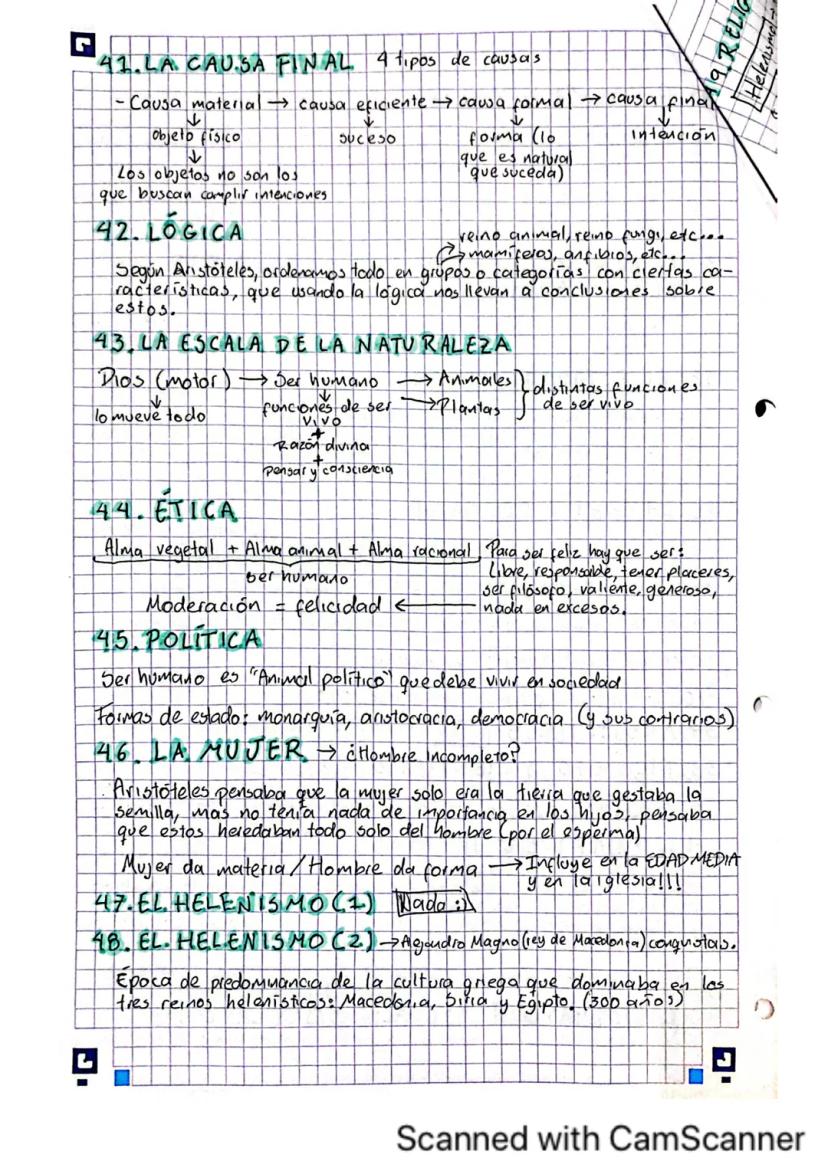 41. LA CAUSA FINAL 4 tipos de causas
- Causa material → causa eficiente → causa formal → causa final
Objeto físico
suceso
forma (lo
que es natural
que suceda)
intención
Los objetos no son los
que buscan complir intenciones
42. LÓGICA
reino animal, reino fungi, etc...
mamíferos, anfibios, etc...
Según Aristóteles, ordenamos todo en grupos o categorías con ciertas ca-
racterísticas, que usando la lógica nos llevan a conclusiones sobre
estos.
43. LA ESCALA DE LA NATURALEZA
Dios (motor) → Ser humano → Animales
→ Plantas
distintas funciones
de ser vivo
lo mueve todo
funciones de ser
vivo
+
Razón divina
+
pensar y consciencia
44. ÉTICA
Alma vegetal + Alma animal + Alma racional
ser humano
Moderación = felicidad ←
Para ser feliz hay que ser:
Libre, responsable, tener placeres,
ser filósofo, valiente, generoso,
nada en excesos.
45. POLÍTICA
Ser humano es "Animal político" que debe vivir en sociedad
Formas de estado: monarquía, aristocracia, democracia (y sus contrarios)
46. LA MUJER → ¿Hombre incompleto?
Aristóteles pensaba que la mujer solo era la tierra que gestaba la
semilla, mas no tenía nada de importancia en los hijos, pensaba
que estos heredaban todo solo del hombre (por el esperma)
Mujer da materia / Hombre da forma → Influye en la EDAD MEDIA
y en la iglesia!!!
47. EL HELENISMO (1) Nada :)
48. EL HELENISMO (2) → Alejandro Magno (rey de Macedonia) conquistas.
Época de predominancia de la cultura griega que dominaba en los
tres reinos helenísticos: Macedonia, Siria y Egipto. (300 años)
Helenismo
Scanned with CamScanner